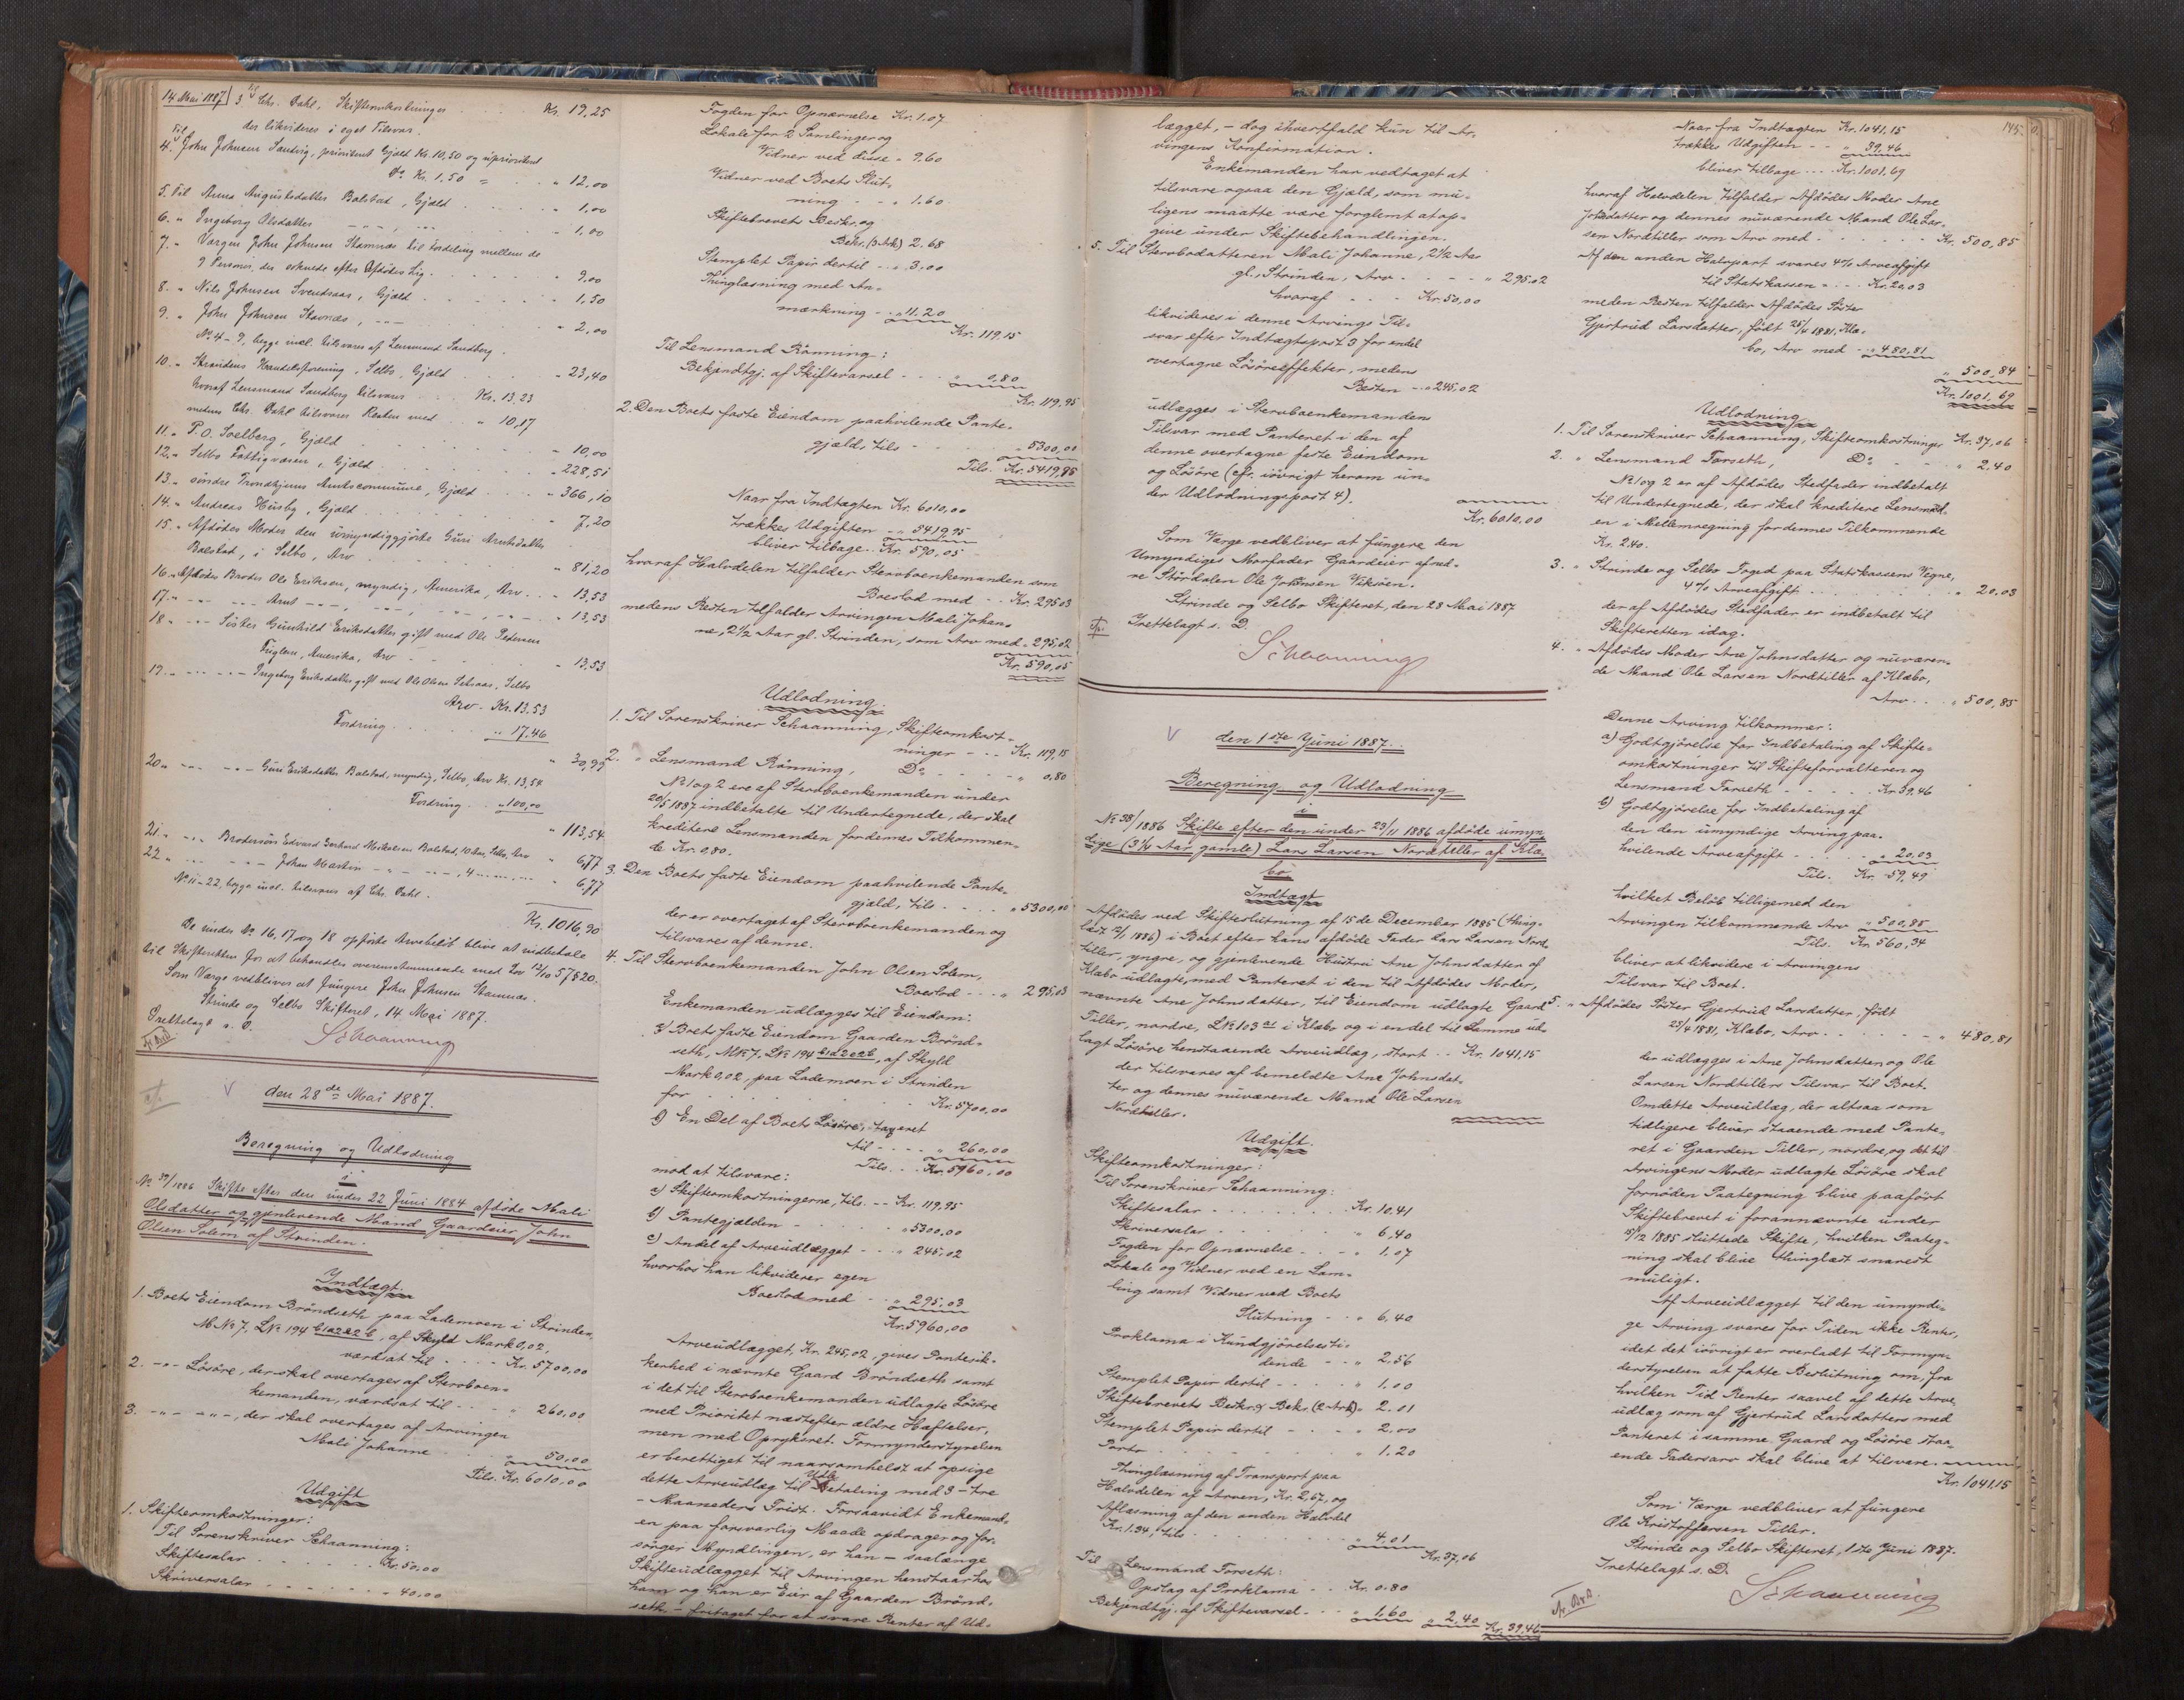 14 Mai 1887 3 Til Chr. Dahl, Skifteomkostninger . . . . Kr. 19,25
der likvideres i eget Tilsvar.
4. Til John Johnsen Sandvig, prioriteret Gjæld Kr. 10,50 og uprioriteret
Do Kr. 1,50 = . . . „ 12,00
5. Til Anna Augustsdatter Balstad, Gjæld . . . . „ 1,00
6. „ Ingeborg Olsdatter - „ - , - „ - . . . „ 1,00
7. „ Værgen John Johnsen Stamnæs til Fordeling mellem de
9 Personer, der vaagede efter Afdødes Lig . . . . „ 9,00
8. „ Nils Johnsen Svendsaas, Gjæld . . . . „ 1,50
9. „ John Johnsen Stamnæs, - „ - . . . „ 2,00
No 4-9, begge incl. tilsvares af Lensmand Sandberg.
10. „ Strandens Handelsforening, Selbo, Gjæld . . . . „ 23,40
hvoraf Lensmand Sandberg tilsvares . . Kr. 13,23
medens Chr. Dahl tilsvares Resten med . . „ 10,17
11. „ P. O. Soelberg, Gjæld . . . . „ 10,00
12. „ Selbo Fattigvæsen, Gjæld . . . . „ 228,51
13. „ søndre Trondhjems Amtscommune, Gjæld . . . „ 366,10
14. „ Andreas Husby, Gjæld . . . . „ 7,20
15. „ Afdødes Moder den umyndiggjorte Guri Arntsdatter
Balstad, i Selbo, Arv . . . . „ 81,20
16. „ Afdødes Broder Ole Eriksen, myndig, Amerika, Arv . . . „ 13,53
17. „ - „ - - „ - Arnt - „ - , - „ - , - „ - , - „ - . . „ 13,53
18. „ - „ - Søster Gunhild Eriksdatter gift med Ole Pedersen
Fuglem, Amerika, Arv . . . . „ 13,53
19. „ - „ - - „ - Ingeborg Eriksdatter gift med Ole Olsen Setsaas, Selbo
Arv . Kr. 13.53
Fordring . . . . „ 17.46
„ 30,99
20 „ - „ - - „ - Guri Eriksdatter Balstad, myndig, Selbo, Arv Kr. 13,54
Fordring . . „ 100,00
„ 113,54
21. „ - „ - Brodersøn Edvard Gerhard Mikalsen Balstad, 10 Aar, Selbo, Arv „ 6,77
22 „ - „ - - „ - Johan Martin - „ - - „ -, 4 - „ - , - „ - „ 6,77
No 11-22, begge incl. tilsvares af Chr. Dahl.
Kr. 1016,90
De under No 16, 17 og 18 opførte Arvebeløb blive at indbetale
til Skifteretten for at behandles overensstemmende med Lov 12/10 57 § 20.
Som Værge vedbliver at fungere John Johnsen Stamnæs.
Strinde og Selbo Skifteret, 14. Mai 1887.
Irettelagt s. D.
Schaanning
den 28de Mai 1887.
Beregning og Udlodning
i
No 37/1886 Skifte efter den under 22 Juni 1884 afdøde Mali
Olsdatter og gjenlevende Mand Gaardeier John
Olsen Solem af Strinden.
Indtægt.
1. Boets Eiendom Brøndseth paa Lademoen i Strinden,
M No 7, L No 194 b1a2e2b, af Skyld Mark 0,02,
værdsat til . . . . Kr. 5700,00
2. - „ - Løsøre, der skal overtages af Stervboen-
kemanden, værdsat til . . . „ 260,00
3. - „ - - „ -, der skal overtages af Arvingen
Mali Johanne . . . . „ 50,00
Tils. Kr. 6010,00
Udgift
1. Skifteomkostninger:
Til Sorenskriver Schaanning:
Skiftesalar . . . . Kr. 50,00
Skriversalar . . . . „ 40,00
Fogden for Opnævnelse Kr. 1.07
Lokale for 2 Samlinger og
Vidner ved disse „ 9.60
Vidner ved Boets Slut-
ning - - „ 1.60
Skiftebrevets Beskr. og
Bekr. (3 Ark) 2.68
Stemplet Papir dertil - „ 3.00
Thinglæsning med An-
mærkning - „ 11.20
Kr. 119,15
Til Lensmand Rønning:
Bekjendtgj. af Skiftevarsel - - - „ 0,80
Kr. 119,95
2. Den Boets faste Eiendom paahvilende Pante-
gjæld, tils - - - „ 5300,00
Tils. Kr. 5419,95
Naar fra Indtægten Kr. 6010,00
trækkes Udgiften - „ 5419,95
bliver tilbage . . Kr. 590,05
hvoraf Halvdelen tilfalder Stervboenkemanden som
Boeslod med . . Kr. 295,03
medens Resten tilfalder Arvingen Mali Johan-
ne, 2½ Aar gl. Strinden, som Arv med „ 295,02
Kr. 590,05
Udlodning
1. Til Sorenskriver Schaanning, Skifteomkost-
ninger - - - Kr. 119,15
2. „ Lensmand Rønning, Do - - - „ 0,80
No 1 og 2 ere af Stervboenkemanden under
20/5 1887 indbetalte til Undertegnede, der skal
kreditere Lensmanden for dennes Tilkommen-
de Kr. 0,80.
3. Den Boets faste Eiendom paahvilende Pante-
gjæld, tils - - - „ 5300,00
der er overtaget af Stervboenkemanden og
tilsvares af denne.
4. Til Stervboenkemanden John Olsen Solem,
Boeslod - - - „ 295,03
Enkemanden udlægges til Eiendom:
a) Boets faste Eiendom Gaarden Brønd-
seth, M No 7, L No 194 b1a2e2b, af Skyld
Mark 0,02, paa Lademoen i Strinden
for . . . . Kr. 5700,00
b) En Del af Boets Løsøre, taxeret
til - - - „ 260,00
Tils. . . Kr. 5960,00
mod at tilsvare:
a) Skifteomkostningerne, tils. - - Kr. 119,95
b) Pantegjælden - . . . „ 5300,00
c) Andel af Arveudlægget - - - „ 245,02
hvorhos han likviderer egen
Boeslod med - - „ 295,03
Kr. 5960,00
Arveudlægget, Kr. 245,02, gives Pantesik-
kerhed i nævnte Gaard Brøndseth samt
i det til Stervboenkemanden udlagte Løsøre
med Prioritet næstefter ældre Hæftelser,
men med Opryksret. Formynderstyrelsen
er berettiget til naarsomhelst at opsige
dette Arveudlæg til Udbetaling med 3 - tre
- Maaneders Frist. Forsaavidt Enkemand-
en paa forsvarlig Maade opdrager og for-
sørger Myndlingen, er han - saalænge
Skifteudlægget til Arvingen henstaar hos
ham og han er Eier af Gaarden Brønd-
seth - fritaget for at svare Renter af Ud-
lægget, - dog ihvertfald kun til Ar-
vingens Konfirmation.
Enkemanden har vedtaget at
tilsvare ogsaa den Gjæld, som mu-
ligens maatte være forglemt at op-
give under Skiftebehandlingen.
5. Til Stervbodatteren Mali Johanne, 2½ Aar
gl., Strinden, Arv - - - - „ 295.02
hvoraf - - - Kr. 50,00
likvideres i denne Arvings Til-
svar efter Indtægtspost 3 for endel
overtagne Løsøreeffekter, medens
Resten - - „ 245,02
udlægges i Stervboenkemandens
Tilsvar med Panteret i den af
denne overtagne faste Eiendom
og Løsøre (cfr. iøvrigt herom un-
der Udlodningspost 4).
Kr. 6010,00
Som Værge vedbliver at fungere den
Umyndiges Morfader Gaardeier af ned-
re Størdalen Ole Johnsen Viksøen.
Strinde og Selbo Skifteret, den 28 Mai 1887
Irettelagt s. D.
Schaanning
den 1ste Juni 1887.
Beregning og Udlodning
i
No 38/1886 Skifte efter den under 23/11 1886 afdøde umyn-
dige (3¼ Aar gamle) Lars Larsen Nordtiller af Klæ-
bo.
Indtægt
Afdødes ved Skifteslutning af 15de December 1885 (thing-
læst 12/1 1886) i Boet efter hans afdøde Fader Lars Larsen Nord-
tiller, yngre, og gjenlevende Hustru Ane Johnsdatter af
Klæbo udlagte, med Panteret i den til Afdødes Moder,
nævnte Ane Johnsdatter, til Eiendom udlagte Gaard
Tiller, nordre, L No 103 a1 i Klæbo og i en del til Samme ud-
lagt Løsøre henstaaende Arveudlæg, stort . . Kr. 1041.15
der tilsvares af bemeldte Ane Johnsdat-
ter og dennes nuværende Mand Ole Larsen
Nordtiller.
Udgift.
Skifteomkostninger:
Til Sorenskriver Schaanning:
Skiftesalar . . . . Kr. 10.41
Skriversalar . . . . „ 6,40
Fogden for Opnævnelse - - - „ 1.07
Lokale og Vidner ved en Sam-
ling samt Vidner ved Boets
Slutning - - „ 6,40
Proklama i Kundgjørelsesti-
dende - - „ 2,56
Stemplet Papir dertil - - - - „ 1.00
Skiftebrevets Beskr. & Bekr. (2 Ark) „ 2.01
Stemplet Papir dertil - - - - „ 2,00
Porto . . . . „ 1.20
Thinglæsning af Transport paa
Halvdelen af Arven, Kr. 2,67, og
Aflæsning af den anden Halvdel
Kr. 1.34, tils . . . . „ 4,01
Kr. 37,06
Til Lensmand Forseth:
Opslag af Proklama - - Kr. 0.80
Bekjendtgj. af Skiftevarsel - - - „ 1,60 „ 2,40
Kr. 39,46
145.
Naar fra Indtægten Kr. 1041,15
trækkes Udgiften - - „ 39,46
bliver tilbage . . . . Kr. 1001,69
hvoraf Halvdelen tilfalder Afdødes Moder Ane
Johnsdatter og dennes nuværende Mand Ole Lar-
sen Nordtiller som Arv med - - - - Kr. 500,85
Af den anden Halvpart svares 4% Arveafgift
til Statskassen „ - - - Kr. 20.03
meden Resten tilfalder Afdødes Søster
Gjertrud Larsdatter, født 25/4 1881, Klæ-
bo, Arv med - - „ 480,81
„ 500,84
Kr. 1001,69
Udlodning
1. Til Sorenskriver Schaanning, Skifteomkostninger Kr. 37,06
2. „ Lensmand Forseth, Do - - - „ 2.40
No 1 og 2 er af Afdødes Stedfader indbetalt
til Undertegnede, der skal kreditere Lensmand-
en i Mellemregning for dennes Tilkommende
Kr. 2.40.
3. „ Strinde og Selbo Foged paa Statskassens Vegne,
4% Arveafgift . . . . „ 20.03
der af Afdødes Stedfader er indbetalt til
Skifteretten idag.
4. „ Afdødes Moder Ane Johnsdatter og nuværen-
de Mand Ole Larsen Nordtiller af Klæbo,
Arv . . . „ 500,85
Denne Arving tilkommer:
a) Godtgjørelse for Indbetaling af Skifte-
omkostninger til Skifteforvalteren og
Lensmand Forseth - - - - Kr. 39.46
b) Godtgjørelse for Indbetaling af
den den umyndige Arving paa-
hvilende Arveafgift - - - - „ 20.03
Tils. Kr. 59,49
hvilket Beløb tilligemed den
Arvingen tilkommende Arv „ 500,85
Tils. Kr. 560,34
bliver at likvidere i Arvingens
Tilsvar til Boet.
5. „ Afdødes Søster Gjertrud Larsdatter, født
25/4 1881, Klæbo, Arv - - - - „ 480,81
der udlægges i Ane Johnsdatters og Ole
Larsen Nordtillers Tilsvar til Boet.
Om dette Arveudlæg, der altsaa som
tidligere bliver staaende med Pante-
ret i Gaarden Tiller, nordre, og det til
Arvingens Moder udlagte Løsøre skal
fornøden Paategning blive paaført
Skiftebrevet i forannævnte under
15/12 1885 sluttede Skifte, hvilken Paateg-
ning skal blive thinglæst snarest
muligt.
Af Arveudlægget til den umyndi-
ge Arving svares for Tiden ikke Renter,
idet det iøvrigt er overladt til Formyn-
derstyrelsen at fatte Beslutning om, fra
hvilken Tid Renter saavel af dette Arve-
udlæg som af Gjertrud Larsdatters med
Panteret i samme Gaard og Løsøre staa-
ende Fadersarv skal blive at tilsvare.
Kr. 1041.15
Som Værge vedbliver at fungere
Ole Kristoffersen Tiller.
Strinde og Selbo Skifteret, 1ste Juni 1887.
Irettelagt s. D.
Schaanning